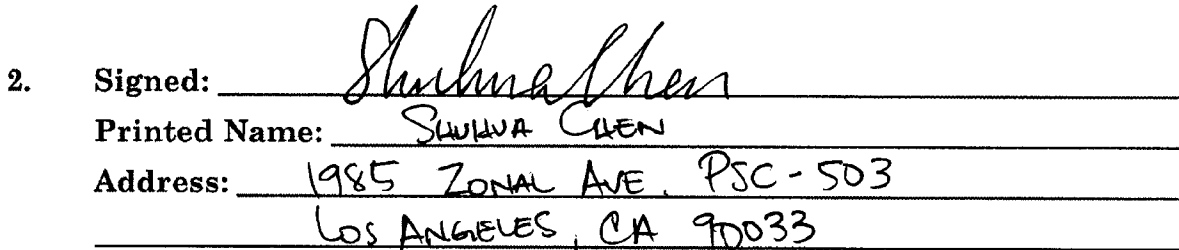 2. Signed: Shuhua Chen
Printed Name: SHUHUA CHEN
Address: 1985 ZONAL AVE. PSC-503
LOS ANGELES, CA 90033